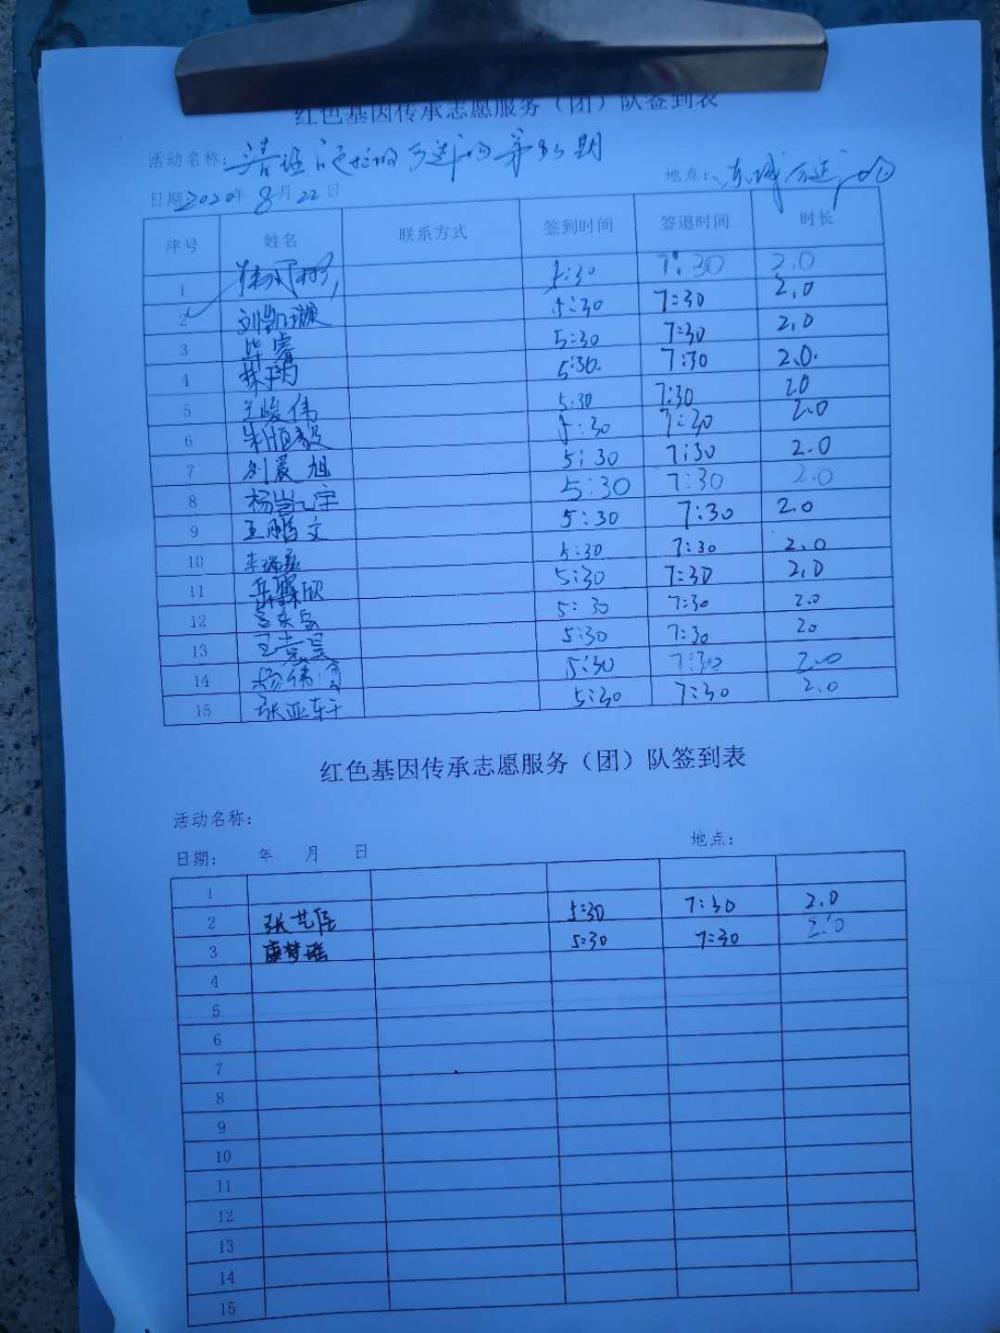 红色基因传承志愿服务（团）队签到表
活动名称：
日期：2020年8月22日 地点：
序号 姓名 联系方式 签到时间 签退时间 时长
1 5:30 7:30 2.0
2 刘凯璇 5:30 7:30 2.0
3 毕睿 5:30 7:30 2.0
4 5:30. 7:30 2.0.
5 王峻伟 5:30 7:30 2.0
6 朱恒毅 5:30 7:30 2.0
7 刘晨旭 5:30 7:30 2.0
8 杨凯宇 5:30 7:30 2.0
9 王鹏文 5:30 7:30 2.0
10 5:30 7:30 2.0
11 5:30 7:30 2.0
12 5:30 7:30 2.0
13 王嘉昊 5:30 7:30 20
14 杨伟 5:30 7:30 2.0
15 张亚轩 5:30 7:30 2.0
红色基因传承志愿服务（团）队签到表
活动名称：
日期： 年 月 日 地点：
1
2 张艺臣 5:30 7:30 2.0
3 康梦瑶 5:30 7:30 2.0
4
5
6
7
8
9
10
11
12
13
14
15